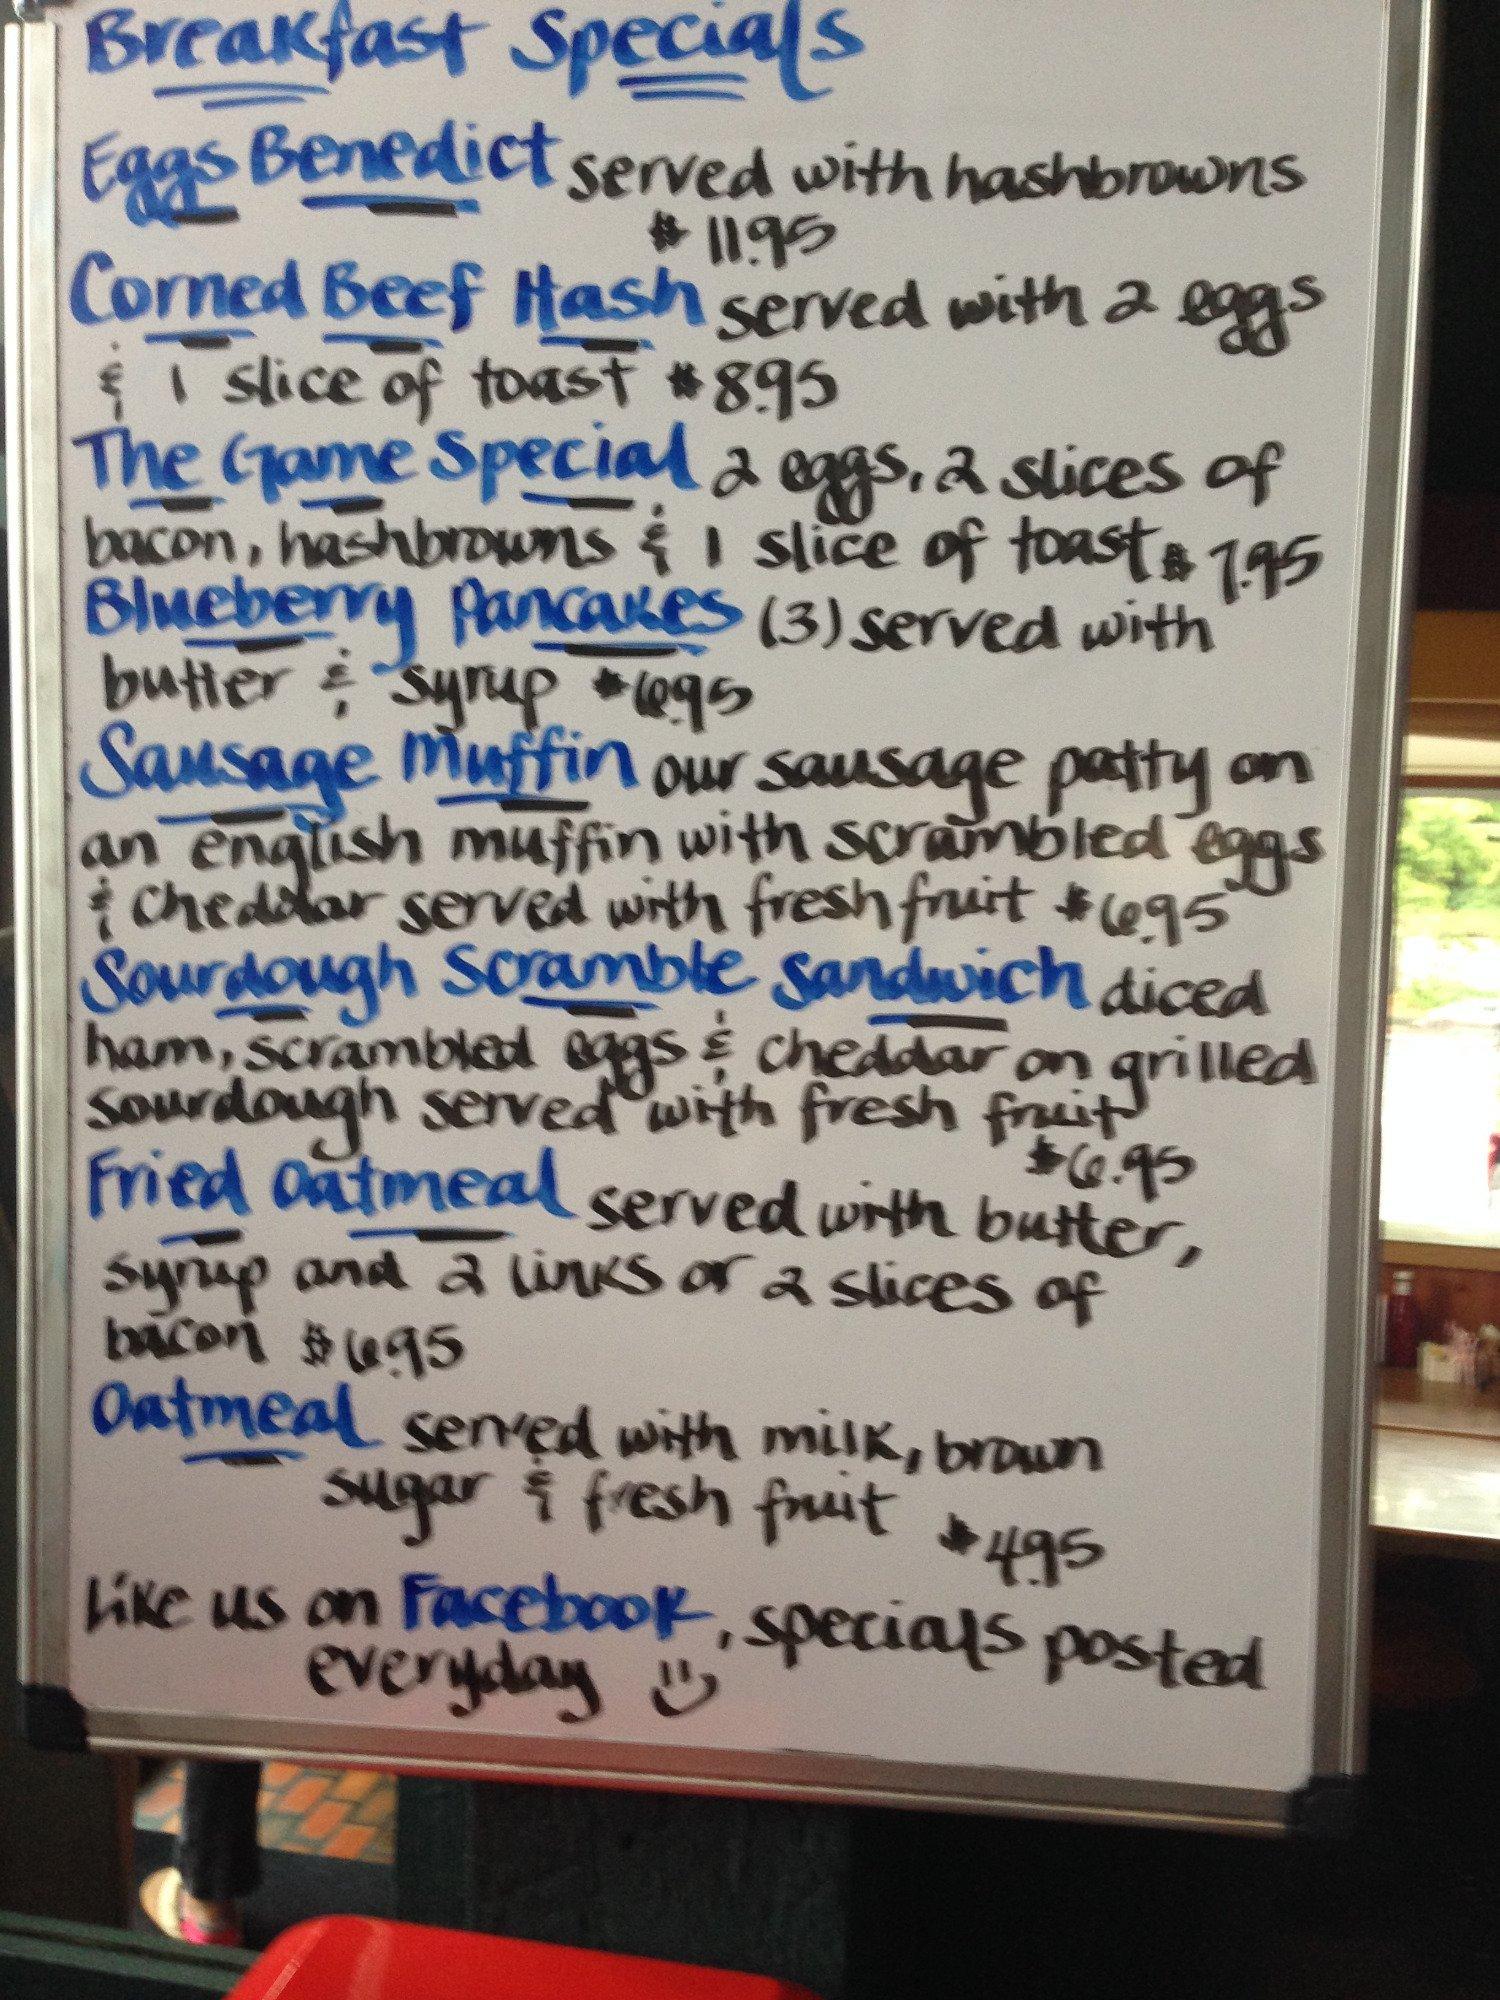 Breakfast Specials
Eggs Benedict served with hashbrowns
$11.95
Corned Beef Hash served with 2 eggs
& 1 slice of toast $8.95
The Game Special 2 eggs, 2 slices of
bacon, hashbrowns & 1 slice of toast $7.95
Blueberry Pancakes (3) served with
butter & syrup $6.95
Sausage Muffin our sausage patty on
an english muffin with scrambled eggs
& cheddar served with fresh fruit $6.95
Sourdough Scramble Sandwich diced
ham, scrambled eggs & cheddar on grilled
sourdough served with fresh fruit
$6.95
Fried Oatmeal served with butter,
syrup and 2 links or 2 slices of
bacon $6.95
Oatmeal served with milk, brown
sugar & fresh fruit $4.95
Like us on Facebook, specials posted
everyday